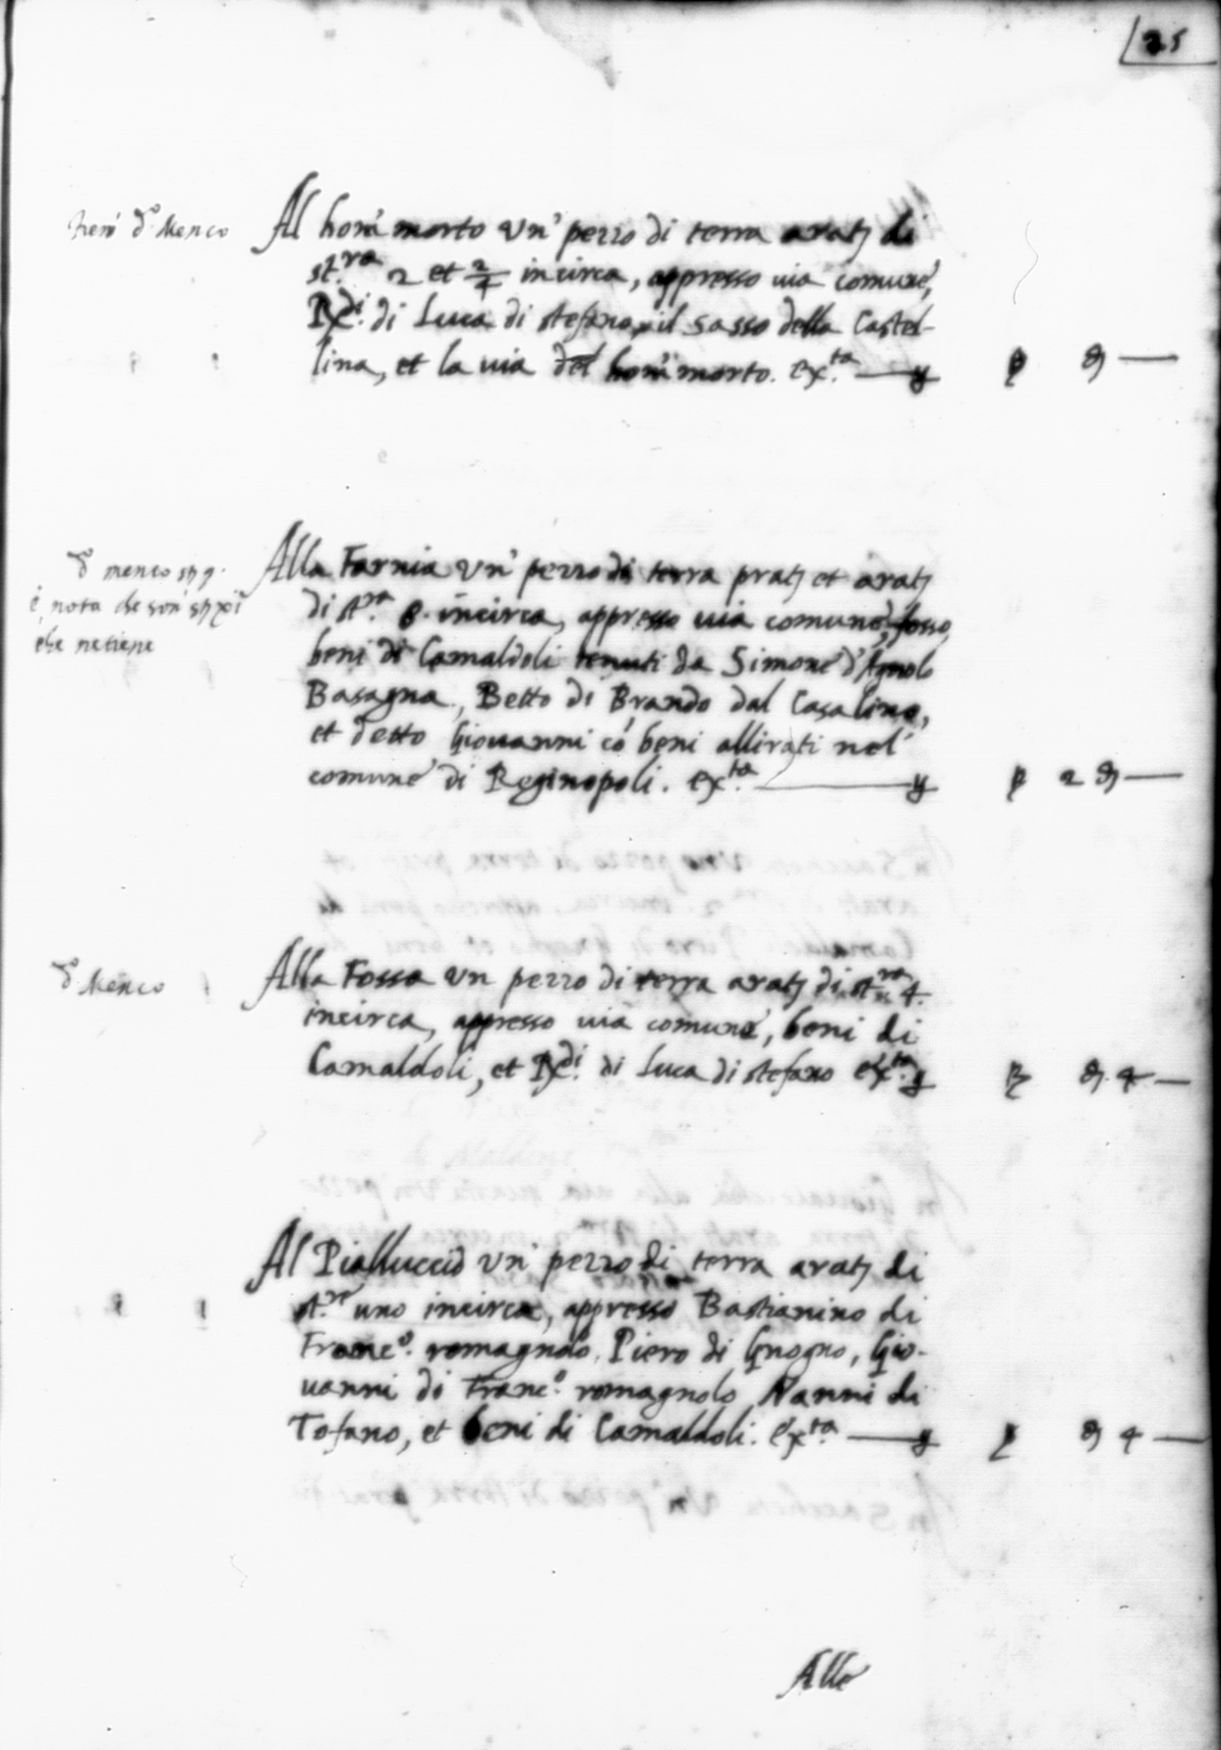 25
Al hom̃ morto Un' pezzo di terra arat; di
st.ra 2 et 2/4 incirca, appresso uia comune,
Rdi. di Luca di stefano, il Sasso della Castel-
lina, et la uia del hom̃ morto. ex.ta
d.o Menco
Alla Farnia Un' pezzo di terra prat; et arat;
di st.ra 8. incirca, appresso uia comune, fosso,
beni di Camaldoli tenuti da Simone d'Agnolo
Basagna, Betto di Brando dal Casalino,
et detto Giouanni có beni allirati nel
comune di Reginopoli. ex.ta 2
d.o menco
é nota che son
che ne tiene
Alla Fossa Un pezzo di terra arat; di st.ra 4.
incirca, appresso uia comune, beni di
Camaldoli, et Rdi. di Luca di stefano ex.ta 4
d.o Menco
Al Pialluccio Un' pezzo di terra arat; di
st.ro uno incirca, appresso Bastianino di
Franc.o romagnolo, Piero di Gnogno, Gio-
uanni di Franc.o romagnolo, Nanni di
Tofano, et beni di Camaldoli. ex.ta 4
Alla